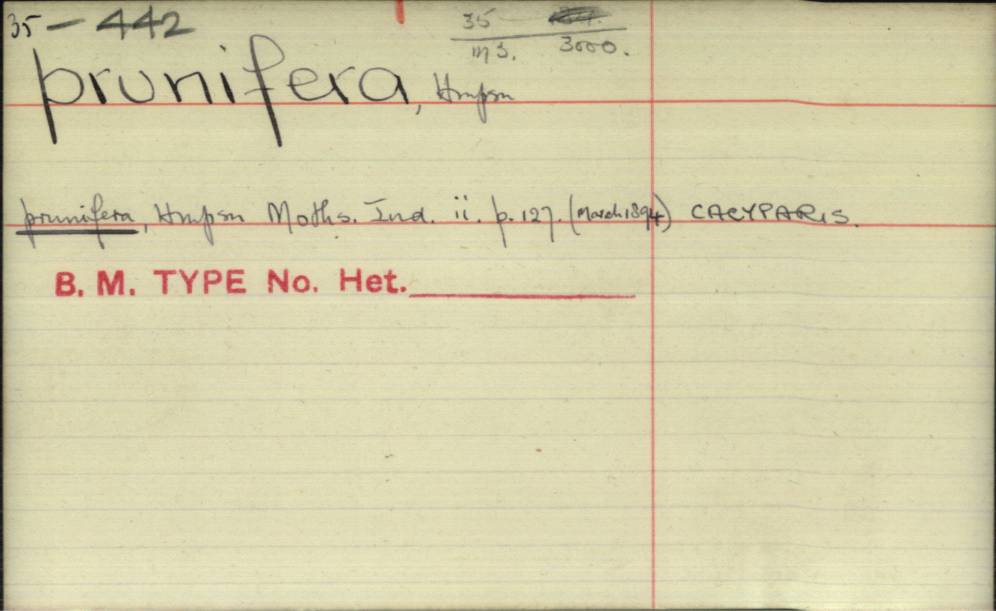 35-442
35
ms. 3000.
prunifera, Hmpsn
prunifera, Hmpsn Moths. Ind. ii. p. 127. (March 1894) CACYPARIS.
B. M. TYPE No. Het.